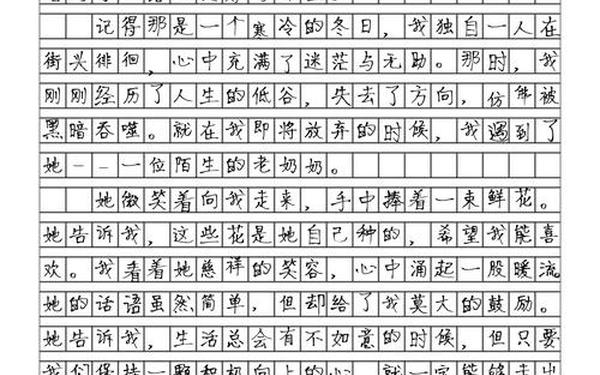 记得那是一个寒冷的冬日，我独自一人在
街头徘徊，心中充满了迷茫与无助。那时，我
刚刚经历了人生的低谷，失去了方向，仿佛被
黑暗吞噬。就在我即将放弃的时候，我遇到了
她--一位陌生的老奶奶。
她微笑着向我走来，手中捧着一束鲜花。
她告诉我，这些花是她自己种的，希望我能喜
欢。我看着她慈祥的笑容，心中涌起一股暖流
她的话语虽然简单，但却给了我莫大的鼓励。
她告诉我，生活总会有不如意的时候，但只要
我们保持一颗积极向上的心，就一定能够走出